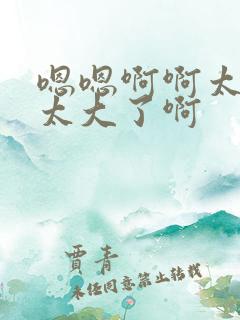 嗯嗯啊啊太
太大了啊
贾青
未经同意禁止转载